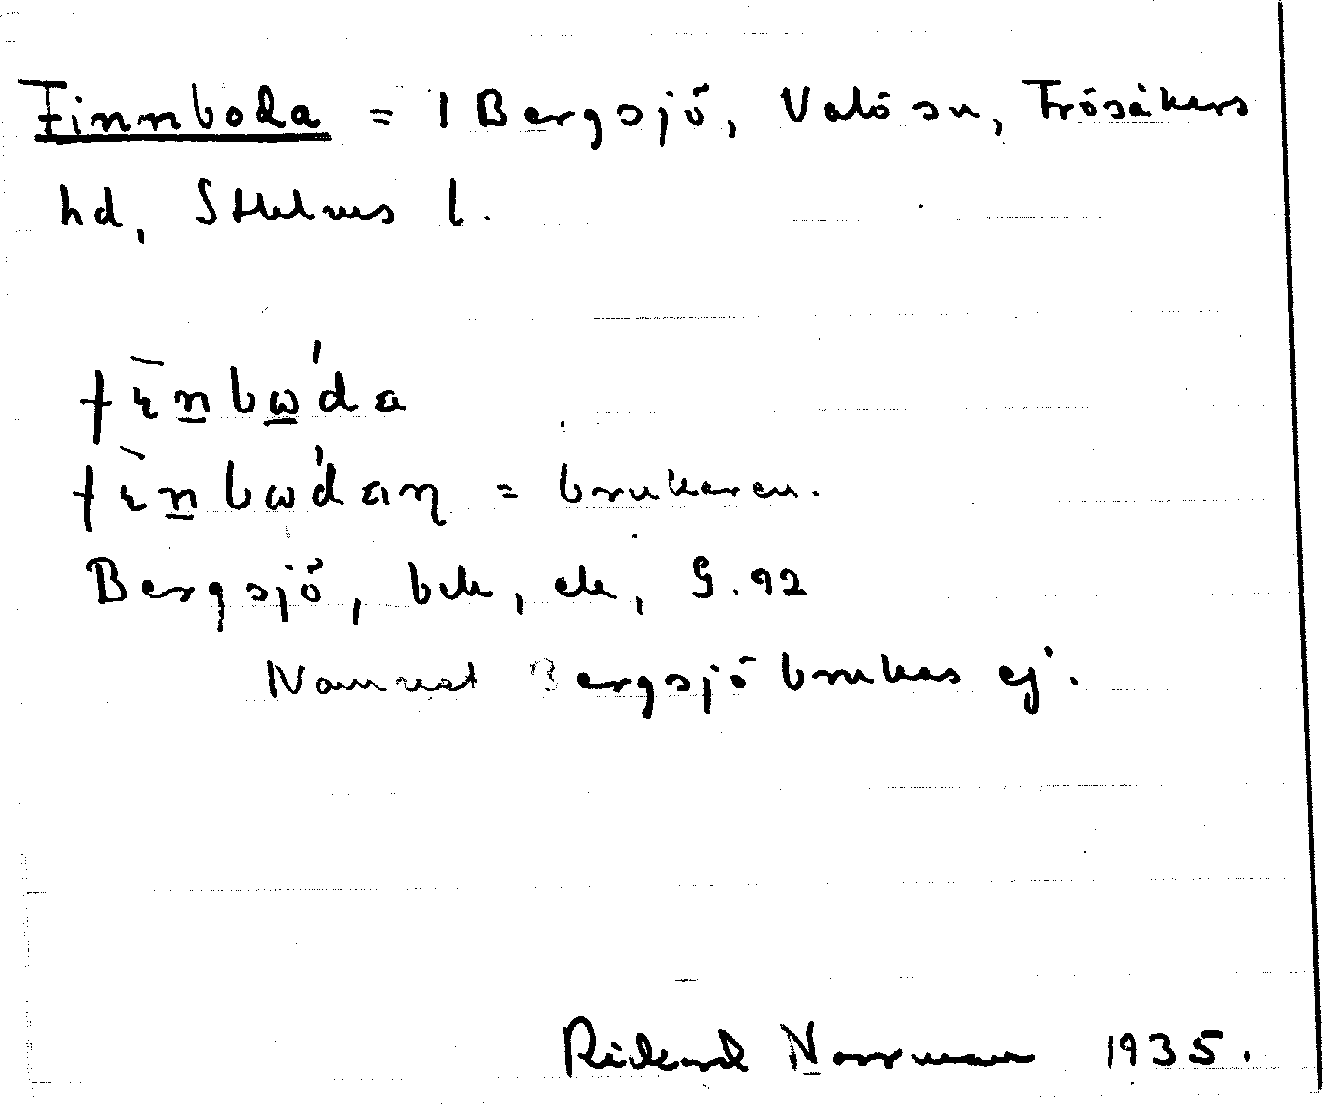 Finnboda = 1 Bergsjö, Valö sn, Frösåkers
hd, Sthlms l.
fɪ̄nbω'da
fɪ̄nbω'dan = brukaren.
Bergsjö, bek, ek, S. 92
Namnet Bergsjö brukas ej.
Rickard Norrman 1935.